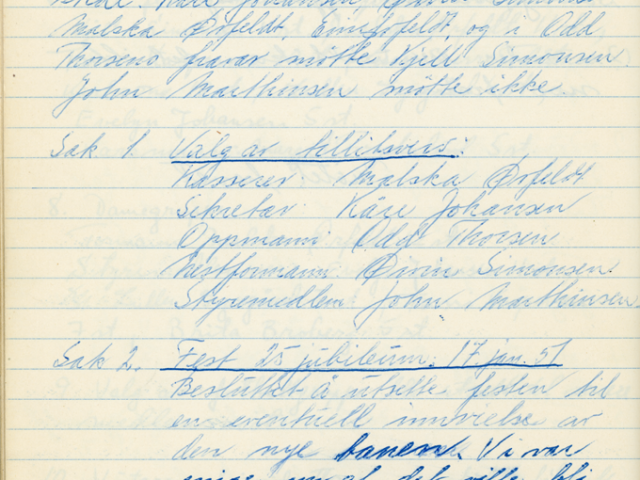 Kåre Johansen, Øivin Simonsen
Malska Ørfeldt, Ørfeldt, og i Odd
Thorsens fravær møtte Kjell Simonsen.
John Marthinsen møtte ikke.
Sak 1. Valg av tillitsverv:
Kasserer: Malska Ørfeldt
Sekretær: Kåre Johansen
Oppmann: Odd Thorsen
Viseformann: Øivin Simonsen.
Styremedlem: John Marthinsen
Sak 2. Fest 25 jubileum: 17 jan. 51
Besluttet å utsette festen til
en eventuell innvielse av
den nye banen. Vi var
enige om at det ville bli